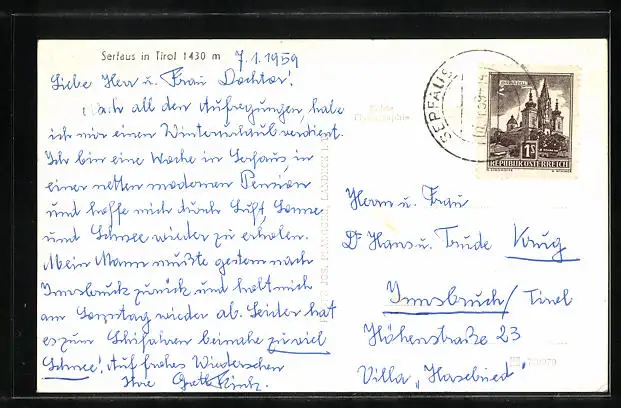 Serfaus in Tirol 1430 m
7.1.1959
Liebe Herr u. Frau Docktor!
Nach all den Aufregungen, habe
ich mir einen Winterurlaub verdient.
Ich bin eine Woche in Serfaus, in
einer netten modernen Pension
und hoffe mich durch Luft, Sonne
und Schnee wieder zu erholen.
Mein Mann mußte gestern nach
Innsbruck zurück und holt mich
am Sonntag wieder ab. Leider hat
es zum Schifahren beinahe zuviel
Schnee! Auf frohes Wiedersehen
Ihre
SERFAUS
1S
REPUBLIK ÖSTERREICH
Herrn u. Frau
Dr Hans u. Trude Krug
Innsbruck/Tirol
Höhenstraße 23
Villa „Haselried"